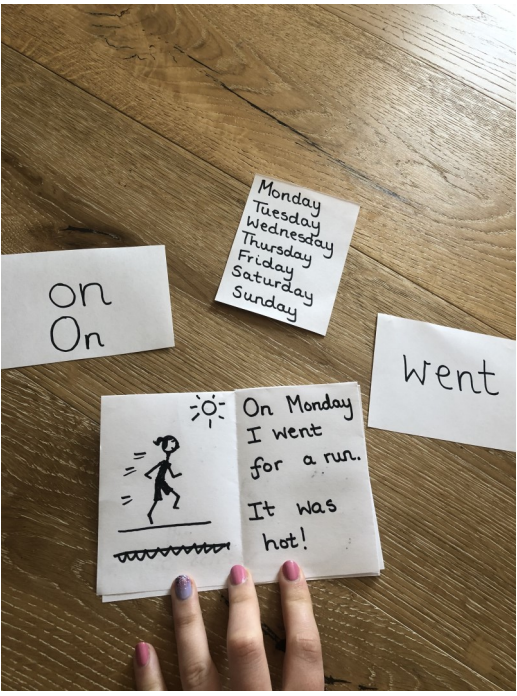 Monday
Tuesday
Wednesday
Thursday
Friday
Saturday
Sunday
on
On
went
On Monday
I went
for a run.
It was
hot!